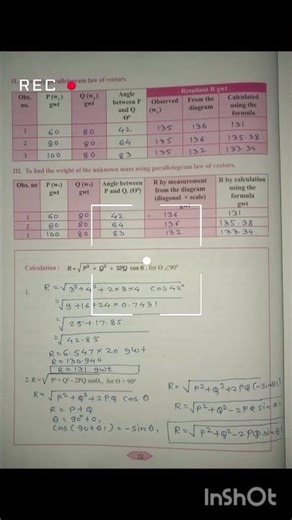 REC
II. parallelogram law of vectors
Obs. no. P (w₁) gwt Q (w₂) gwt Angle between P and Q θ° Resultant R gwt
Observed (w₃) From the diagram Calculated using the formula
1 60 80 42 135 136 131
2 80 80 64 135 136 135.38
3 100 80 83 135 132 133.34
III. To find the weight of the unknown mass using parallelogram law of vectors.
Obs. no P (w₁) gwt Q (w₂) gwt Angle between P and Q. (θ°) R by measurement from the diagram (diagonal × scale) R by calculation using the formula gwt
1 60 80 42 136 131
2 80 80 64 136 135.38
3 100 80 83 132 133.34
Calculation : R=√P² + Q² + 2PQ cos θ, for θ <90°
1. R = √3²+4² + 2×3×4 cos 42°
= √9+16+24×0.7431
= √25+17.85
= √42.85
R = 6.547×20 gwt
R = 130.94
R = 131 gwt
2. R = √P² + Q² - 2PQ sinθ₁, for θ > 90°
R = √P²+Q²+2PQ cos θ
R = P+Q
θ = 90°+θ₁
cos (90+θ₁) = -sinθ₁
R = √P²+Q²+2PQ(-sinθ₁)
R = √P²+Q²-2PQ sinθ₁
R = √P²+Q²-2PQ sinθ₁
32
InShOt